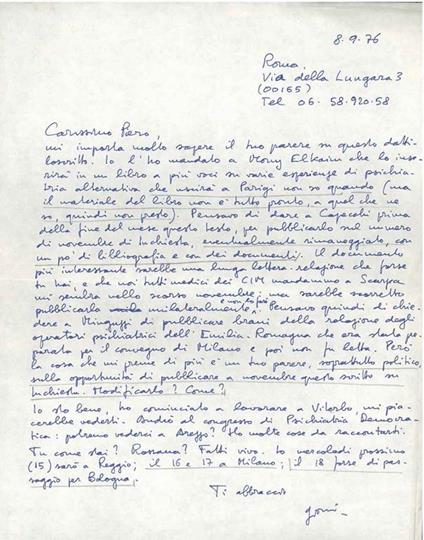 8.9.76
Roma,
Via della Lungara 3
(00165)
Tel 06. 58.920.58
Carissimo Piero,
mi importa molto sapere il tuo parere su questo datti-
loscritto. Io l'ho mandato a Mony Elkaim che lo inse-
rirà in un libro a più voci su varie esperienze di psichia-
tria alternativa che uscirà a Parigi non so quando (ma
il materiale del libro non è tutto pronto, a quel che ne
so, quindi non presto). Pensavo di dare a Capecchi prima
della fine del mese questo testo, per pubblicarlo sul numero
di novembre di Inchiesta, eventualmente rimaneggiato, con
un po' di bibliografia e con dei documenti. Il documento
più interessante sarebbe una lunga lettera-relazione che forse
tu hai, e che noi tutti medici dei CIM mandammo a Scarpa
mi sembra nello scorso novembre; ma sarebbe scorretto
pubblicarlo unilateralmente. Pensavo quindi di chie-
dere a Minguzzi di pubblicare brani della relazione degli
operatori psichiatrici dell'Emilia-Romagna che era stata pre-
parata per il convegno di Milano e poi non fu letta. Però
la cosa che mi preme di più è un tuo parere, soprattutto politico,
sulla opportunità di pubblicare a novembre questo scritto su
Inchiesta. Modificarlo? Come?
Io sto bene, ho cominciato a lavorare a Viterbo, mi pia-
cerebbe vederti. Andrò al congresso di Psichiatria Democra-
tica: potremo vederci a Arezzo? Ho molte cose da raccontarti.
Tu come stai? Rossana? Fatti vivo. Io mercoledì prossimo
(15) sarò a Reggio; il 16 e 17 a Milano; il 18 forse di pas-
saggio per Bologna.
Ti abbraccio